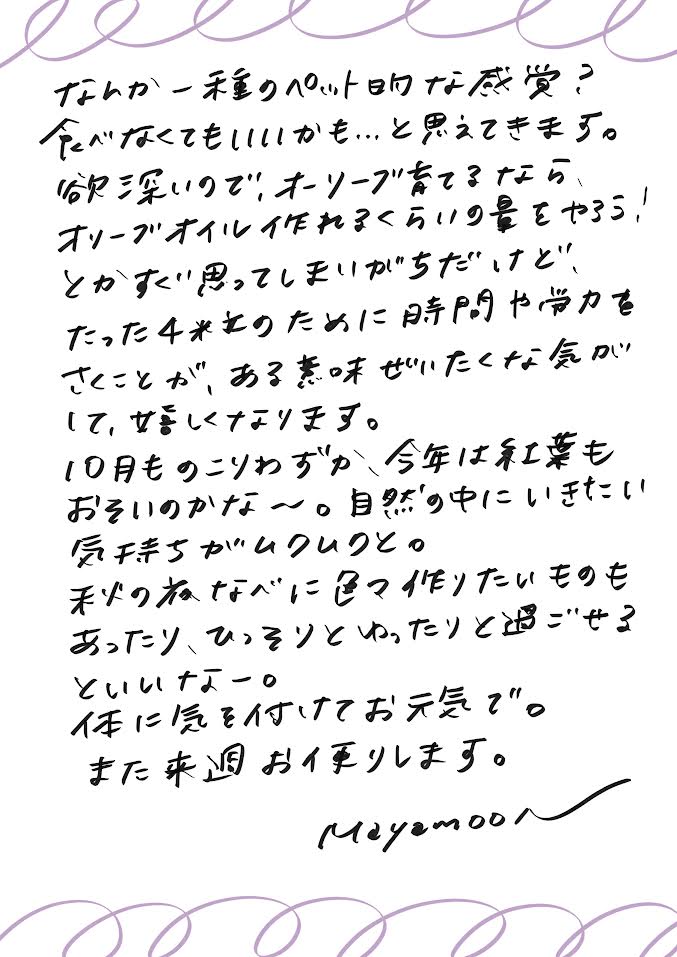 なんか一種のペット的な感覚?
食べなくてもいいかも…と思えてきます。
欲深いので、オリーブ育てるなら、
オリーブオイル作れるくらいの量をやろう!
とかすぐ思ってしまいがちだけど、
たった4粒のために時間や労力を
さくことが、ある意味ぜいたくな気が
して、嬉しくなります。
10月ものこりわずか、今年は紅葉も
おそいのかな〜。自然の中にいきたい
気持ちがムクムクと。
秋の夜なべに色々作りたいものも
あったり、ひっそりとゆったりと過ごせる
といいなー。
体に気を付けてお元気で。
また来週お便りします。
Mayamoon